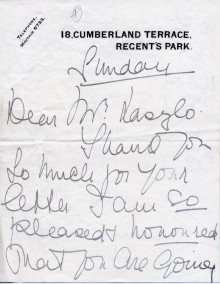 TELEPHONE,
MAYFAIR 6793.
18, CUMBERLAND TERRACE,
RECENT'S PARK.
Sunday
Dear Mr. Kaszlo.
Thank you
so much for your
letter I am so
pleased & honoured
that you are going